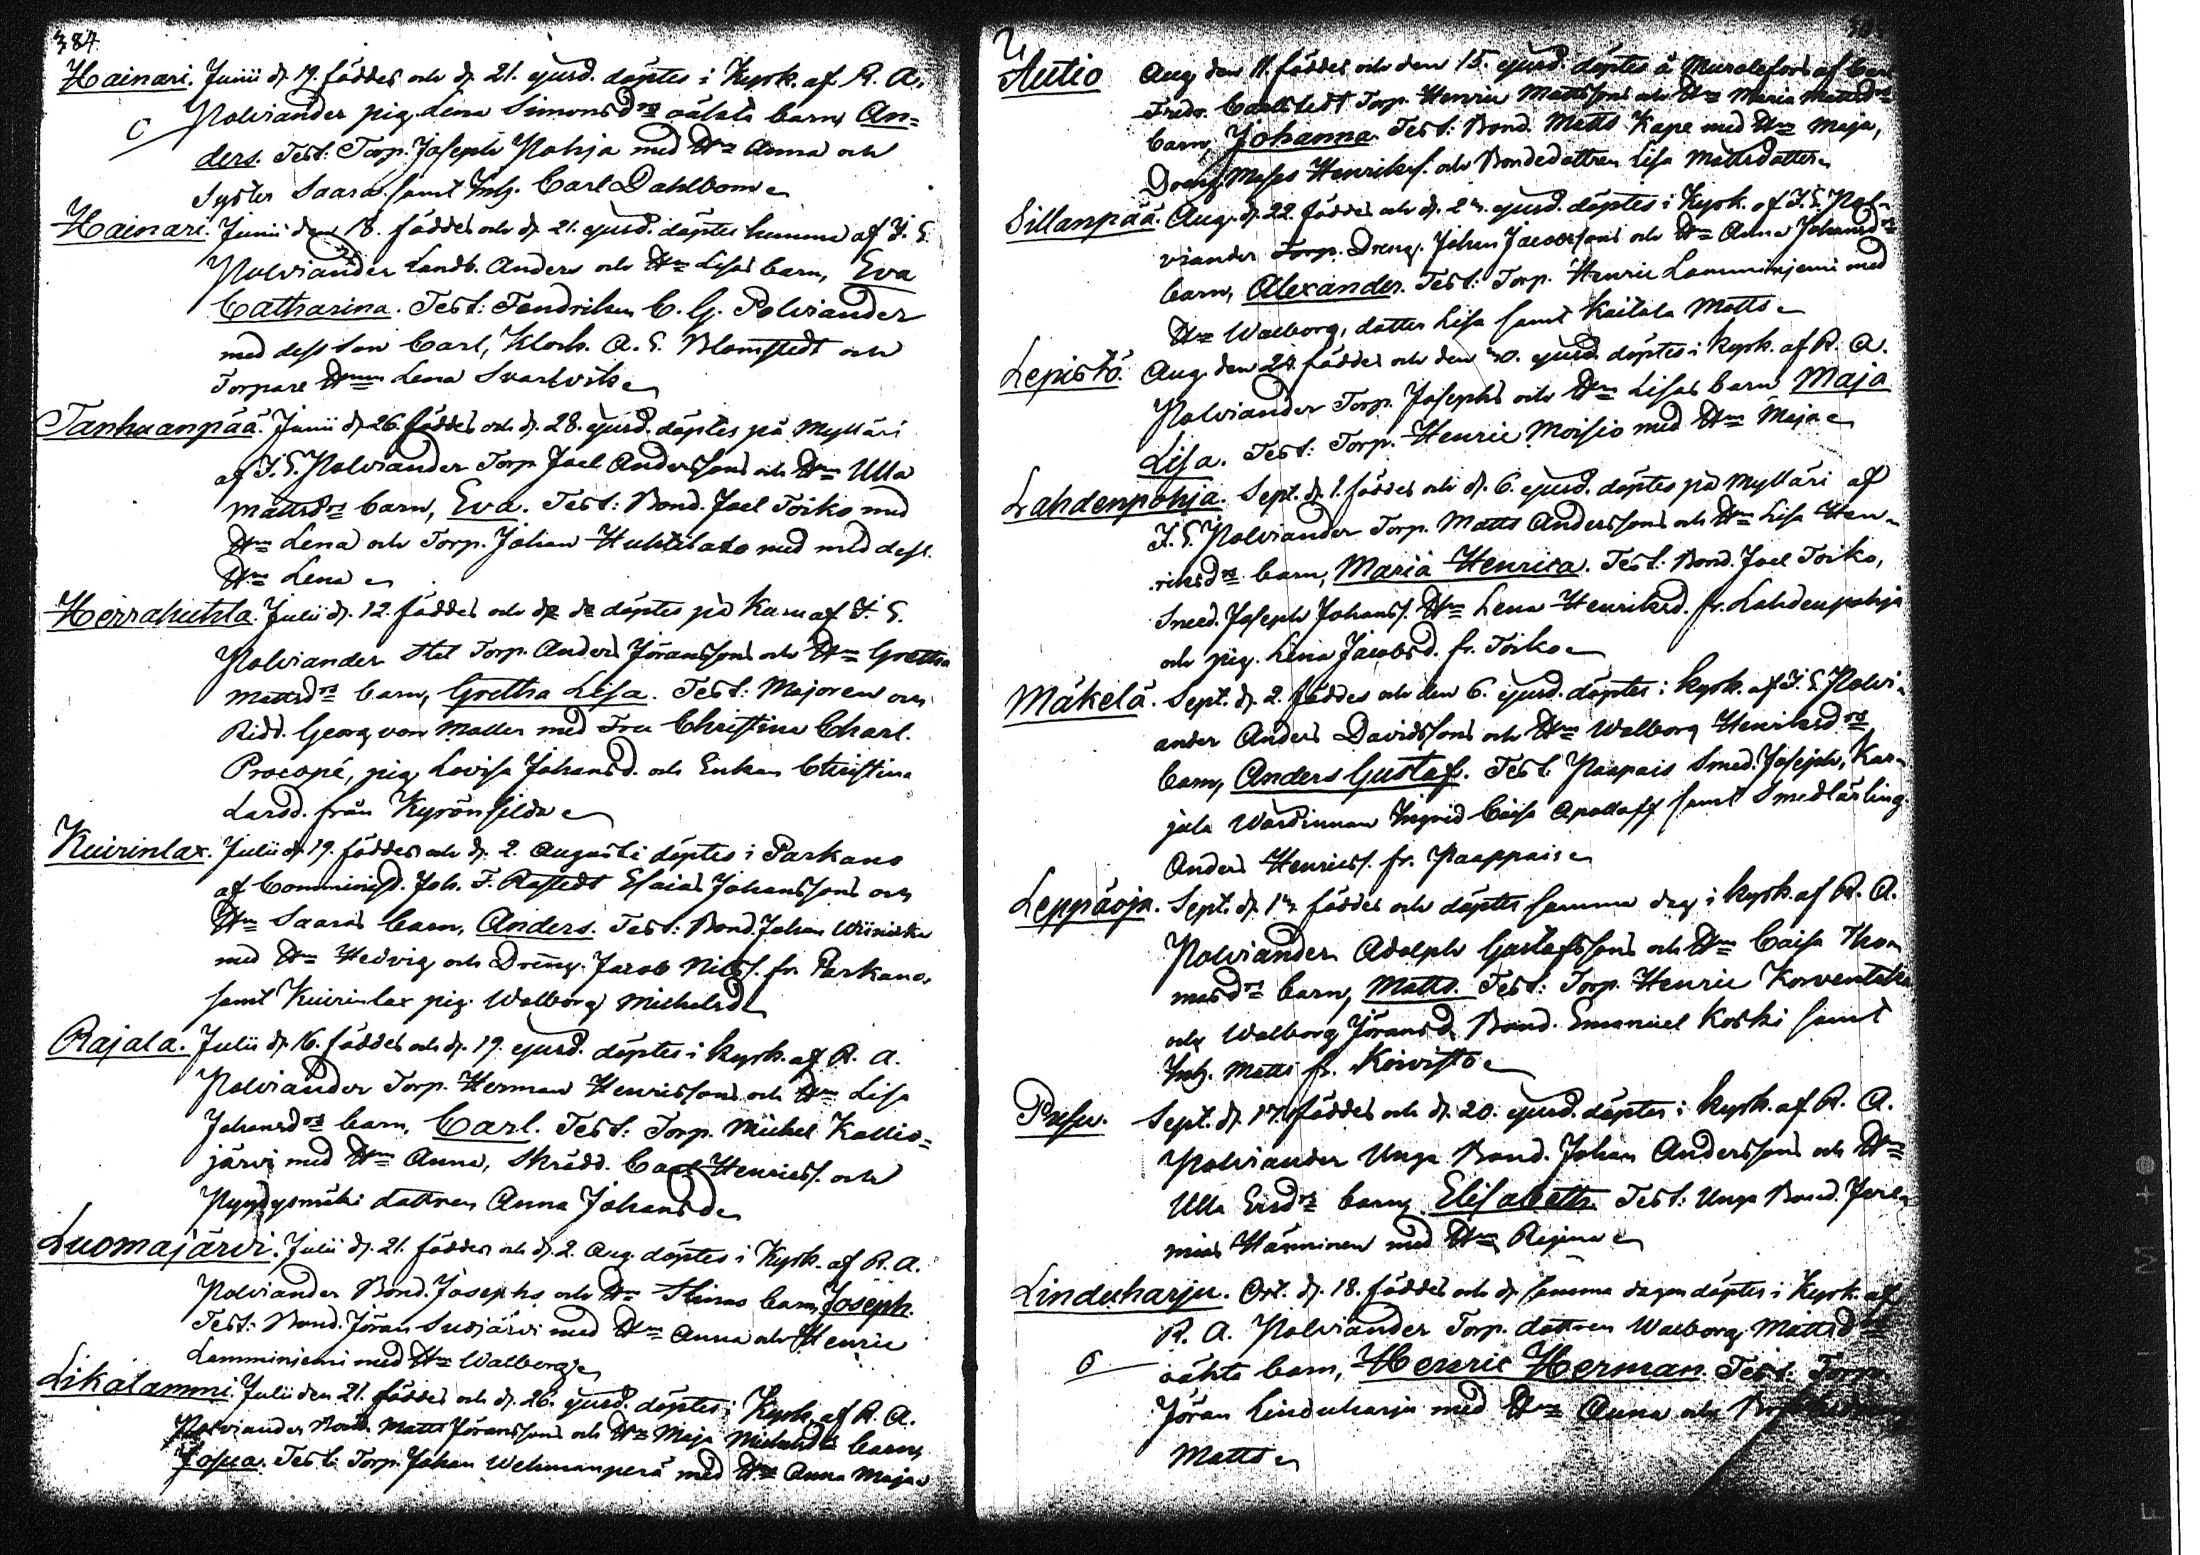 384.
Hainari. Junii d. 19. föddes och d. 21. ejusd. döptes i Kyrk. af R. A.
Polviander pig. Lena Simonsd:rs oäkta barn, An=
ders. Test: Torp. Joseph Pohja med H:u Anna och
Syster Saara samt Inh. Carl Dahlbom
Hainari. Junii den 18. föddes och d. 21. ejusd. döptes hemma af J. E.
Polviander Landb. Anders och H:u Lisas barn, Eva
Catharina. Test: Fendriken C. G. Polviander
med dess son Carl, Klock. A. E. Blomstedt och
Torpare H:un Lena Svartvik
Tanhuanpää. Junii d. 26. föddes och d. 28. ejusd. döptes på Mylläri
af J. E. Polviander Torp. Joel Anderssons och H:u Ulla
Mattsd:rs barn, Eva. Test: Bond. Joel Toiko med
H:u Lena och Torp. Johan Huhtilato med med dess
H:u Lena
Herrakuhta. Julii d. 12. föddes och döptes på Karu af J. E.
Polviander Torp. Anders Jöranssons och H:u Gretha
Mattsd:rs barn, Gretha Lisa. Test: Majoren och
Ridd. Georg von Moller med Fru Christina Charl.
Procopé, pig. Lovisa Johansd. och Enkan Christina
Larsd. från
Kuirinlax. Julii d. 19. föddes och d. 2. Augusti döptes i Parkano
af Comminist. Joh. F. Rastedt Esaias Johanssons och
H:u Saaras barn, Anders. Test: Bond. Johan
med H:u Hedvig och Dreng. Jacob Nilss. fr. Parkano,
samt Kuirinlax pig. Walborg Michelsd
Rajala. Julii d. 16. föddes och d. 19. ejusd. döptes i Kyrk. af R. A.
Polviander Torp. Herman Henrissons och H:u Lisa
Johansd:rs barn, Carl. Test: Torp. Michel Kallio=
järvi med H:u Anna, Skrädd. Carl Henricss. och
Pyydysmäki dattren Anna Johansd
Luomajärvi. Julii d. 21. föddes och d. 2. Aug. döptes i Kyrk. af R. A.
Polviander Bond. Josephs och H:u Stinas barn, Joseph.
Test: Bond. Jöran Susijärvi med H:u Anna och Henric
Lamminjemi med H:u Walborg
Likalammi. Julii den 21. föddes och d. 26. ejusd. döptes i Kyrk. af R. A.
Polviander Bond. Matts Jöranssons och H:u Maja Michelsd:rs barn,
Josua. Test: Torp. Johan Wehmanperä med H:u Anna Maja
Autio Aug. den 11. föddes och den 15. ejusd. döptes å af Carl
Fredr. Carlstedt Torp. Henric Mattssons och H:u Maria Mattsd:rs
barn, Johanna. Test: Bond. Matts Kape med H:u Maja,
Dreng. Henrikss. och Bondedattren Lisa Mattsdatter
Sillanpää. Aug. d. 22. föddes och d. ejusd. döptes i Kyrk. af J. E. Pol-
viander Torp. Dreng. Johan Jacobssons och H:u Anna Johansd:rs
barn, Alexander. Test: Torp. Henric Lamminjemi med
H:u Walborg, datter Lisa samt Kaitala Matts
Lepistö. Aug. den 24. föddes och den 30. ejusd. döptes i Kyrk. af R. A.
Polviander Torp. Josephs och H:u Lisas barn Maja
Lisa. Test: Torp. Henric Moisio med H:u Maja
Lahdenpohja. Sept. d. 1. föddes och d. 6. ejusd. döptes på Mylläri af
J. E. Polviander Torp. Matts Anderssons och H:u Lisa Hen-
riksd:rs barn, Maria Henrica. Test: Bond. Joel Toiko,
Sned. Joseph Johanss. H:u Lena Henriksd. fr. Lahdenpohja
och pig. Lena Jacobsd. fr. Toiko
Mäkelä. Sept. d. 2. föddes och den 6. ejusd. döptes i Kyrk. af J. E. Polvi-
ander Anders Davidssons och H:u Walborg Henriksd:rs
barn, Anders Gustaf. Test: Paapais Smed. Joseph, Kar-
jala Wärdinnan Ingrid Caisa Apolloff samt Smedlärling.
Anders Henricss. fr. Paappais
Leppäoja. Sept. d. föddes och döptes samma dag i Kyrk. af R. A.
Polviander Adolph Gustafssons och H:u Caisa Tho-
masd:rs barn, Matts. Test: Torp. Henric Korventaka
och Walborg Jöransd. Bond. Emanuel Koski samt
Inh. Matts fr. Koivisto
Sept. d. 17. föddes och d. 20. ejusd. döptes i Kyrk. af R. A.
Polviander Unga Bond. Johan Anderssons och H:u
Ulla Ersd:rs barn, Elisabeth. Test: Unga Bond. Jere-
mias Hänninen med H:u Regina
Linduharju. Oct. d. 18. föddes och d. samma dagen döptes i Kyrk. af
R. A. Polviander Torp. dattren Walborg Mattsd:rs
oäkta barn, Henric Herman. Test: Torp.
Jöran Linduharju med H:u Anna och
Matts